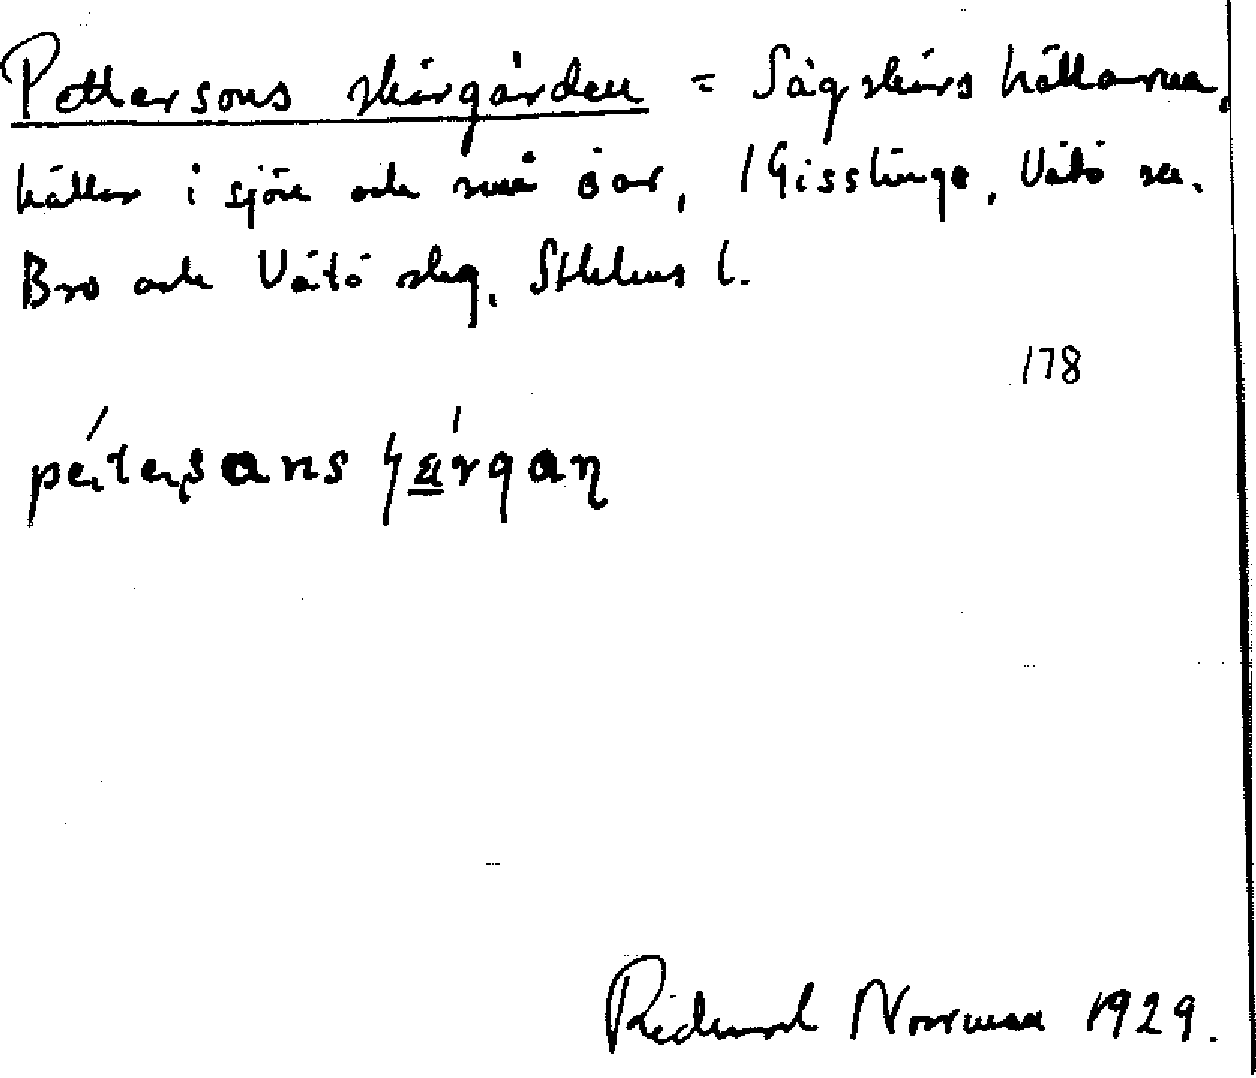 Pettersons skärgården = Sågskärs hällarna,
hällar i sjön och små öar, 1 Gisslinge, Vätö sn.
Bro och Vätö skg, Sthlms l.
178
pétersɑns ʃä́rgɑn
Richard Norrman 1929.